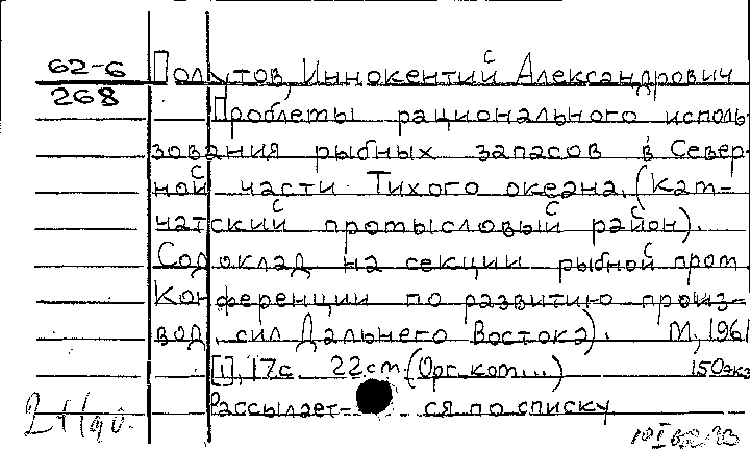 62-6
268
Полутов, Иннокентий Александрович
Проблемы рационального исполь-
зования рыбных запасов в Север-
ной части Тихого океана. (Кам-
чатский промысловый район).
Содоклад на секции рыбной пром.
Конференции по развитию произ-
вод. сил Дальнего Востока). М., 1961
[1], 17с. 22см (Орг. ком...) 150экз
Рассылает- ся по списку